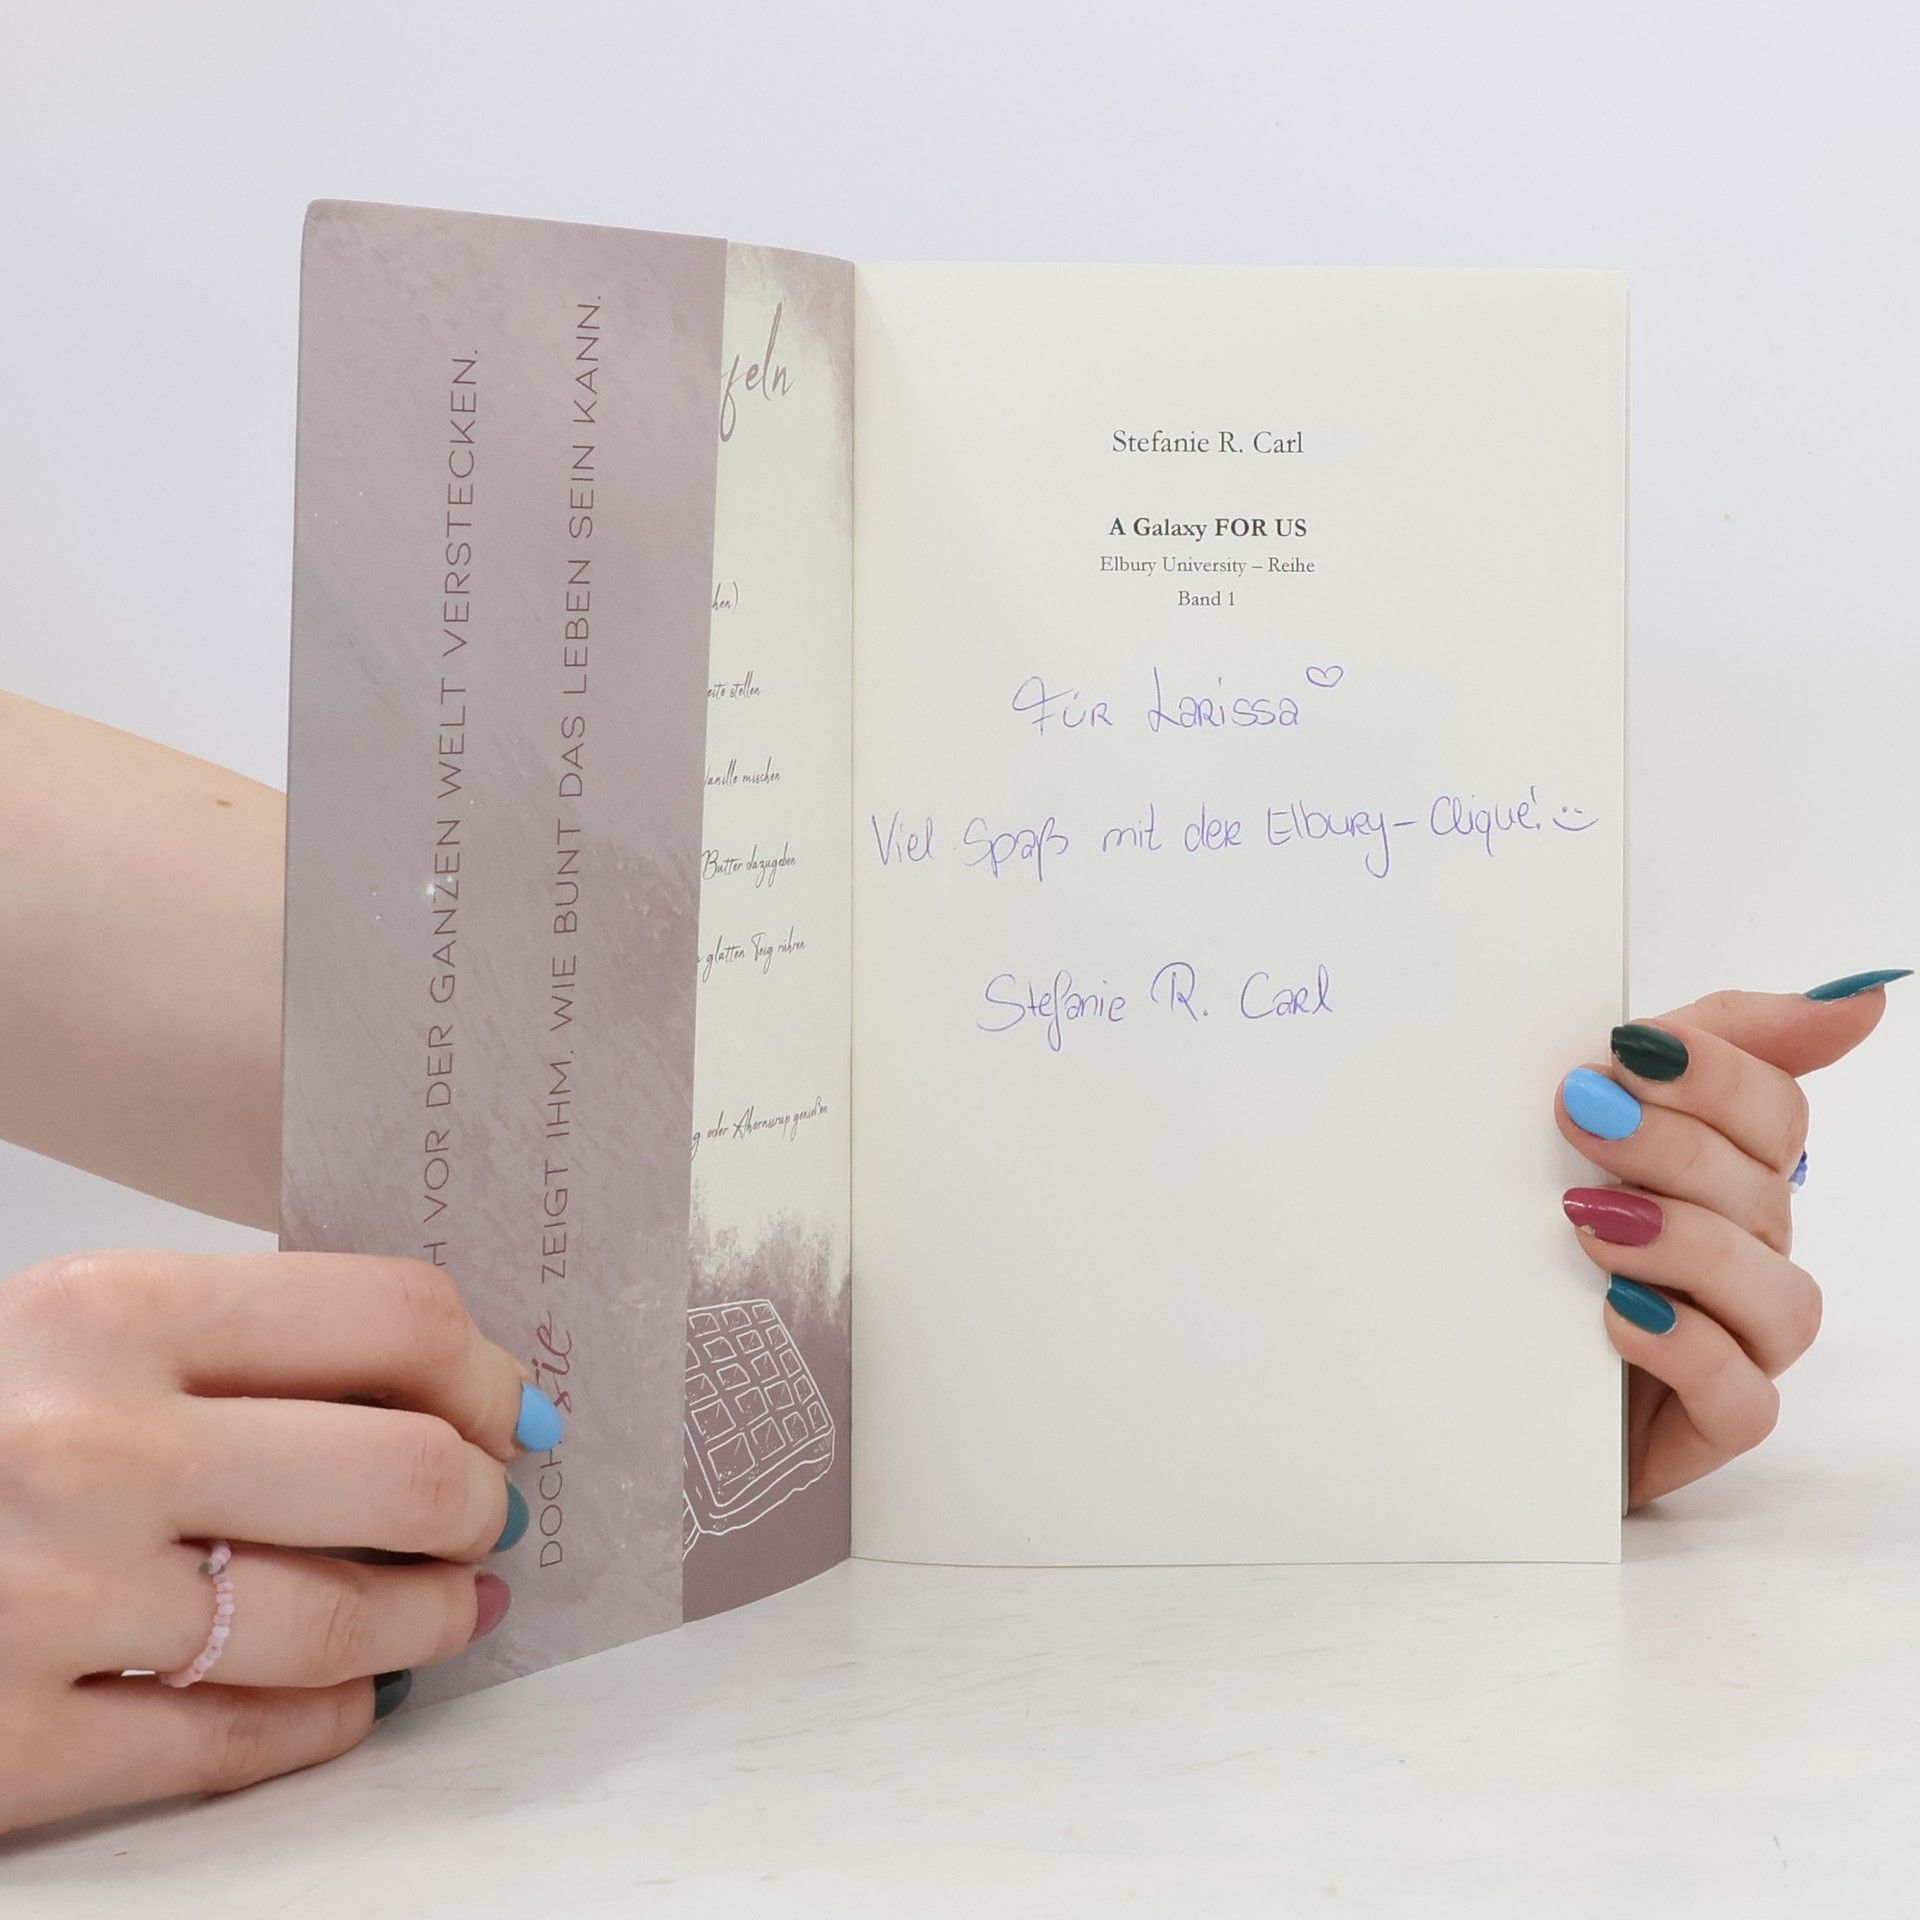 H VOR DER GANZEN WELT VERSTECKEN.
DOCH sie ZEIGT IHM, WIE BUNT DAS LEBEN SEIN KANN.
feln
hen)
eite stellen
Vanille mischen
Butter dazugeben
glatten Teig rühren
g oder Ahornsirup genießen
Stefanie R. Carl
A Galaxy FOR US
Elbury University – Reihe
Band 1
Für Larissa ♡
Viel Spaß mit der Elbury-Clique! :)
Stefanie R. Carl